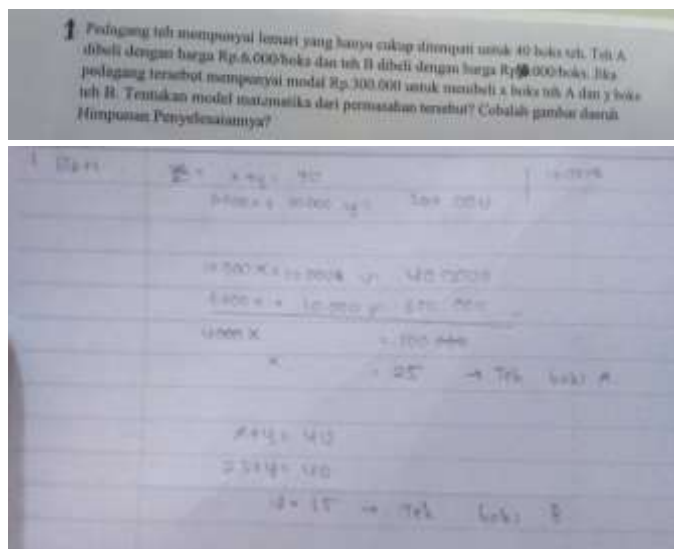 1 Pedagang teh mempunyai lemari yang hanya cukup ditempati untuk 40 boks teh. Teh A
dibeli dengan harga Rp.6.000/boks dan teh B dibeli dengan harga 000/boks. Jika
pedagang tersebut mempunyai modal Rp.300.000 untuk membeli x boks teh A dan y boks
teh B. Tentukan model matematika dari permasalahan tersebut? Cobalah gambar daerah
Himpunan Penyelesaiannya?
1
x + y = 40
6000 x + 10.000 y = 300 000
10.000 x + 10.000 y = 400000
6000 x + 10.000 y =
4000 x = 100
x = 25 → Teh boks A
x + y = 40
25 + y = 40
y = 15 → Teh boks B